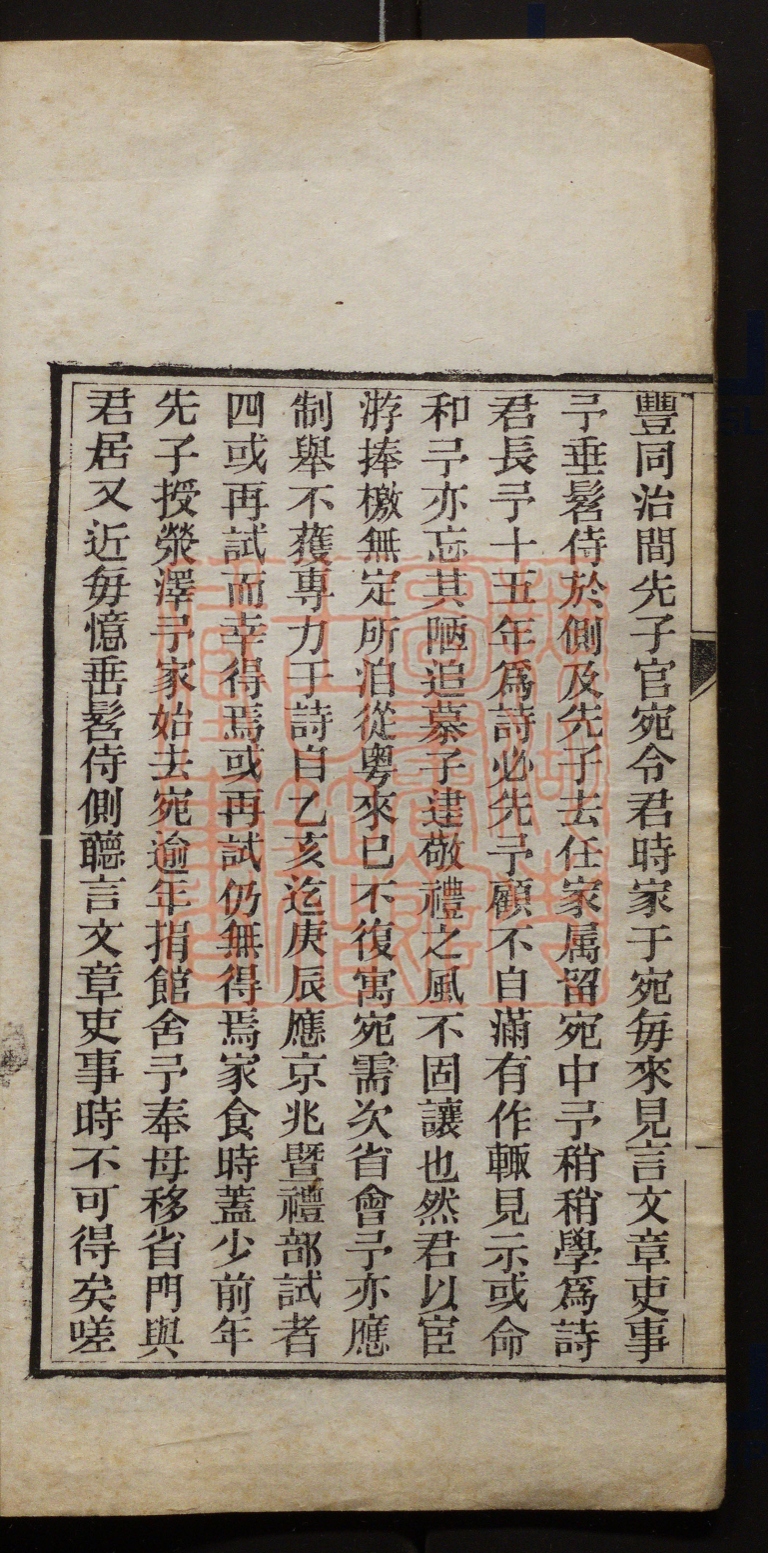 豐同治間先子官宛令君時家于宛每來見言文章吏事
予垂髫侍於側及先子去任家属留宛中予稍稍學爲詩
君長予十五年爲詩必先予顧不自滿有作輙見示或命
和予亦忘其陋追慕子建敬禮之風不固讓也然君以宦
游捧檄無定所洎從粤來已不復寓宛需次省會予亦應
制舉不獲專力于詩自乙亥迄庚辰應京兆暨禮部試者
四或再試而幸得焉或再試仍無得焉家食時蓋少前年
先子授滎澤予家始去宛逾年捐館舍予奉母移省門與
君居又近每憶垂髫侍側聽言文章吏事時不可得矣嗟